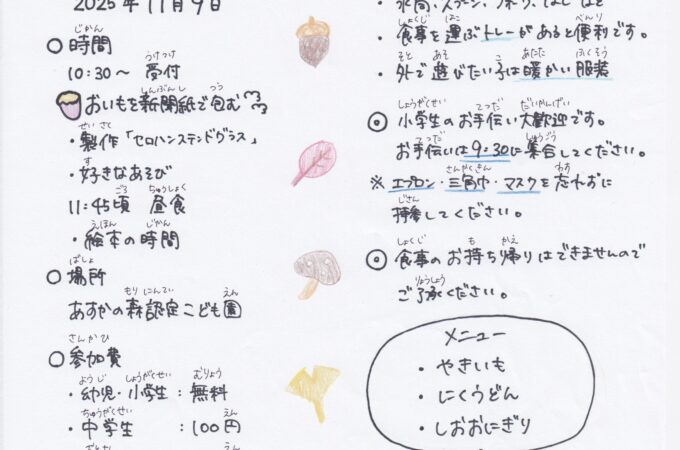 2025年11月9日
○時間
10:30～ 受付
おいもを新聞紙で包む
・製作「セロハンステンドグラス」
・好きなあそび
11:45頃 昼食
・絵本の時間
○場所
あすかの森認定こども園
○参加費
・幼児・小学生：無料
・中学生 ：100円
・食事を運ぶトレーがあると便利です。
・外で遊びたい子は暖かい服装
◎小学生のお手伝い大歓迎です。
お手伝いは9:30に集合してください。
※エプロン・三角巾・マスクを忘れずに
持参してください。
◎食事のお持ち帰りはできませんので
ご了承ください。
メニュー
・やきいも
・にくうどん
・しおおにぎり